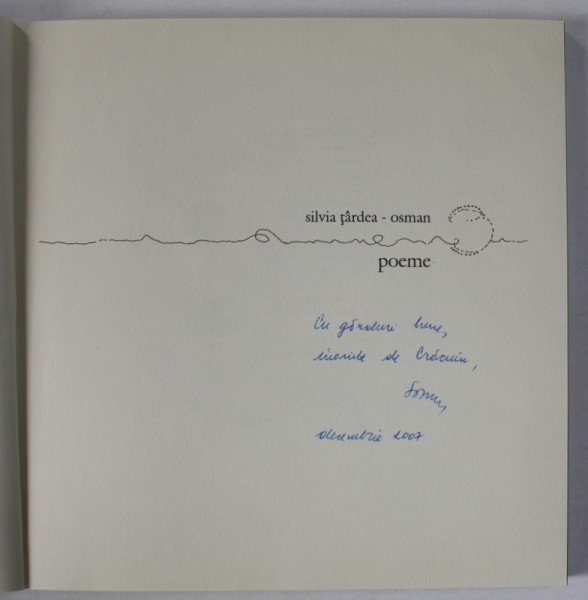 silvia ţârdea - osman
poeme
Cu gânduri bune,
înainte de Crăciun,
decembrie 2007